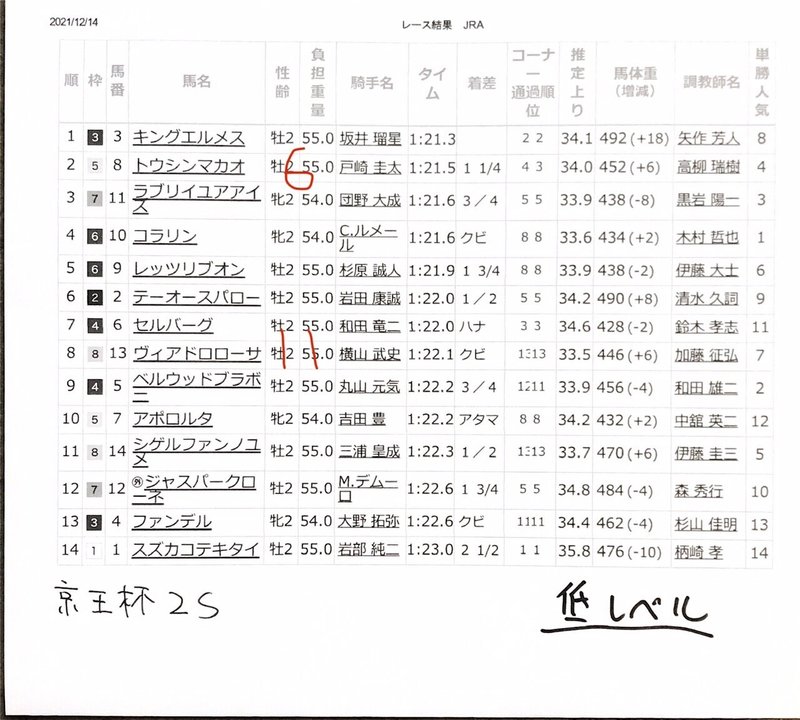 2021/12/14 レース結果 JRA
順 枠 馬番 馬名 性齢 負担重量 騎手名 タイム 着差 コーナー通過順位 推定上り 馬体重(増減) 調教師名 単勝人気
1 3 3 キングエルメス 牡2 55.0 坂井 瑠星 1:21.3 2 2 34.1 492 (+18) 矢作 芳人 8
2 5 8 トウシンマカオ 牡2 6 55.0 戸崎 圭太 1:21.5 1 1/4 4 3 34.0 452 (+6) 高柳 瑞樹 4
3 7 11 ラブリイユアアイズ 牝2 54.0 団野 大成 1:21.6 3／4 5 5 33.9 438 (-8) 黒岩 陽一 3
4 6 10 コラリン 牝2 54.0 C.ルメール 1:21.6 クビ 8 8 33.6 434 (+2) 木村 哲也 1
5 6 9 レッツリブオン 牡2 55.0 杉原 誠人 1:21.9 1 3/4 8 8 33.9 438 (-2) 伊藤 大士 6
6 2 2 テーオースパロー 牡2 55.0 岩田 康誠 1:22.0 1／2 5 5 34.2 490 (+8) 清水 久詞 9
7 4 6 セルバーグ 牡2 55.0 和田 竜二 1:22.0 ハナ 3 3 34.6 428 (-2) 鈴木 孝志 11
8 8 13 ヴィアドロローサ 牡2 11 55.0 横山 武史 1:22.1 クビ 1313 33.5 446 (+6) 加藤 征弘 7
9 4 5 ベルウッドブラボー 牡2 55.0 丸山 元気 1:22.2 3／4 1211 33.9 456 (-4) 和田 雄二 2
10 5 7 アポロルタ 牝2 54.0 吉田 豊 1:22.2 アタマ 8 8 34.2 432 (+2) 中舘 英二 12
11 8 14 シゲルファンノユメ 牡2 55.0 三浦 皇成 1:22.3 1／2 1313 33.7 470 (+6) 伊藤 圭三 5
12 7 12 ㊕ジャスパークローネ 牡2 55.0 M.デムーロ 1:22.6 1 3/4 5 5 34.8 484 (-4) 森 秀行 10
13 3 4 ファンデル 牝2 54.0 大野 拓弥 1:22.6 クビ 1111 34.4 462 (-4) 杉山 佳明 13
14 1 1 スズカコテキタイ 牡2 55.0 岩部 純二 1:23.0 2 1/2 1 1 35.8 476 (-10) 柄崎 孝 14
京王杯2S 低レベル